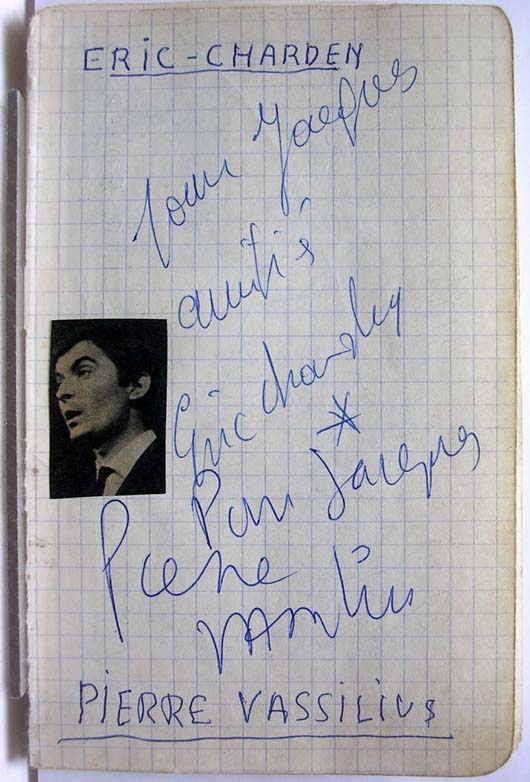 ERIC-CHARDEN
Pour Jacques
amitiés
Eric Charden
Pour Jacques
Pierre
PIERRE VASSILIUS